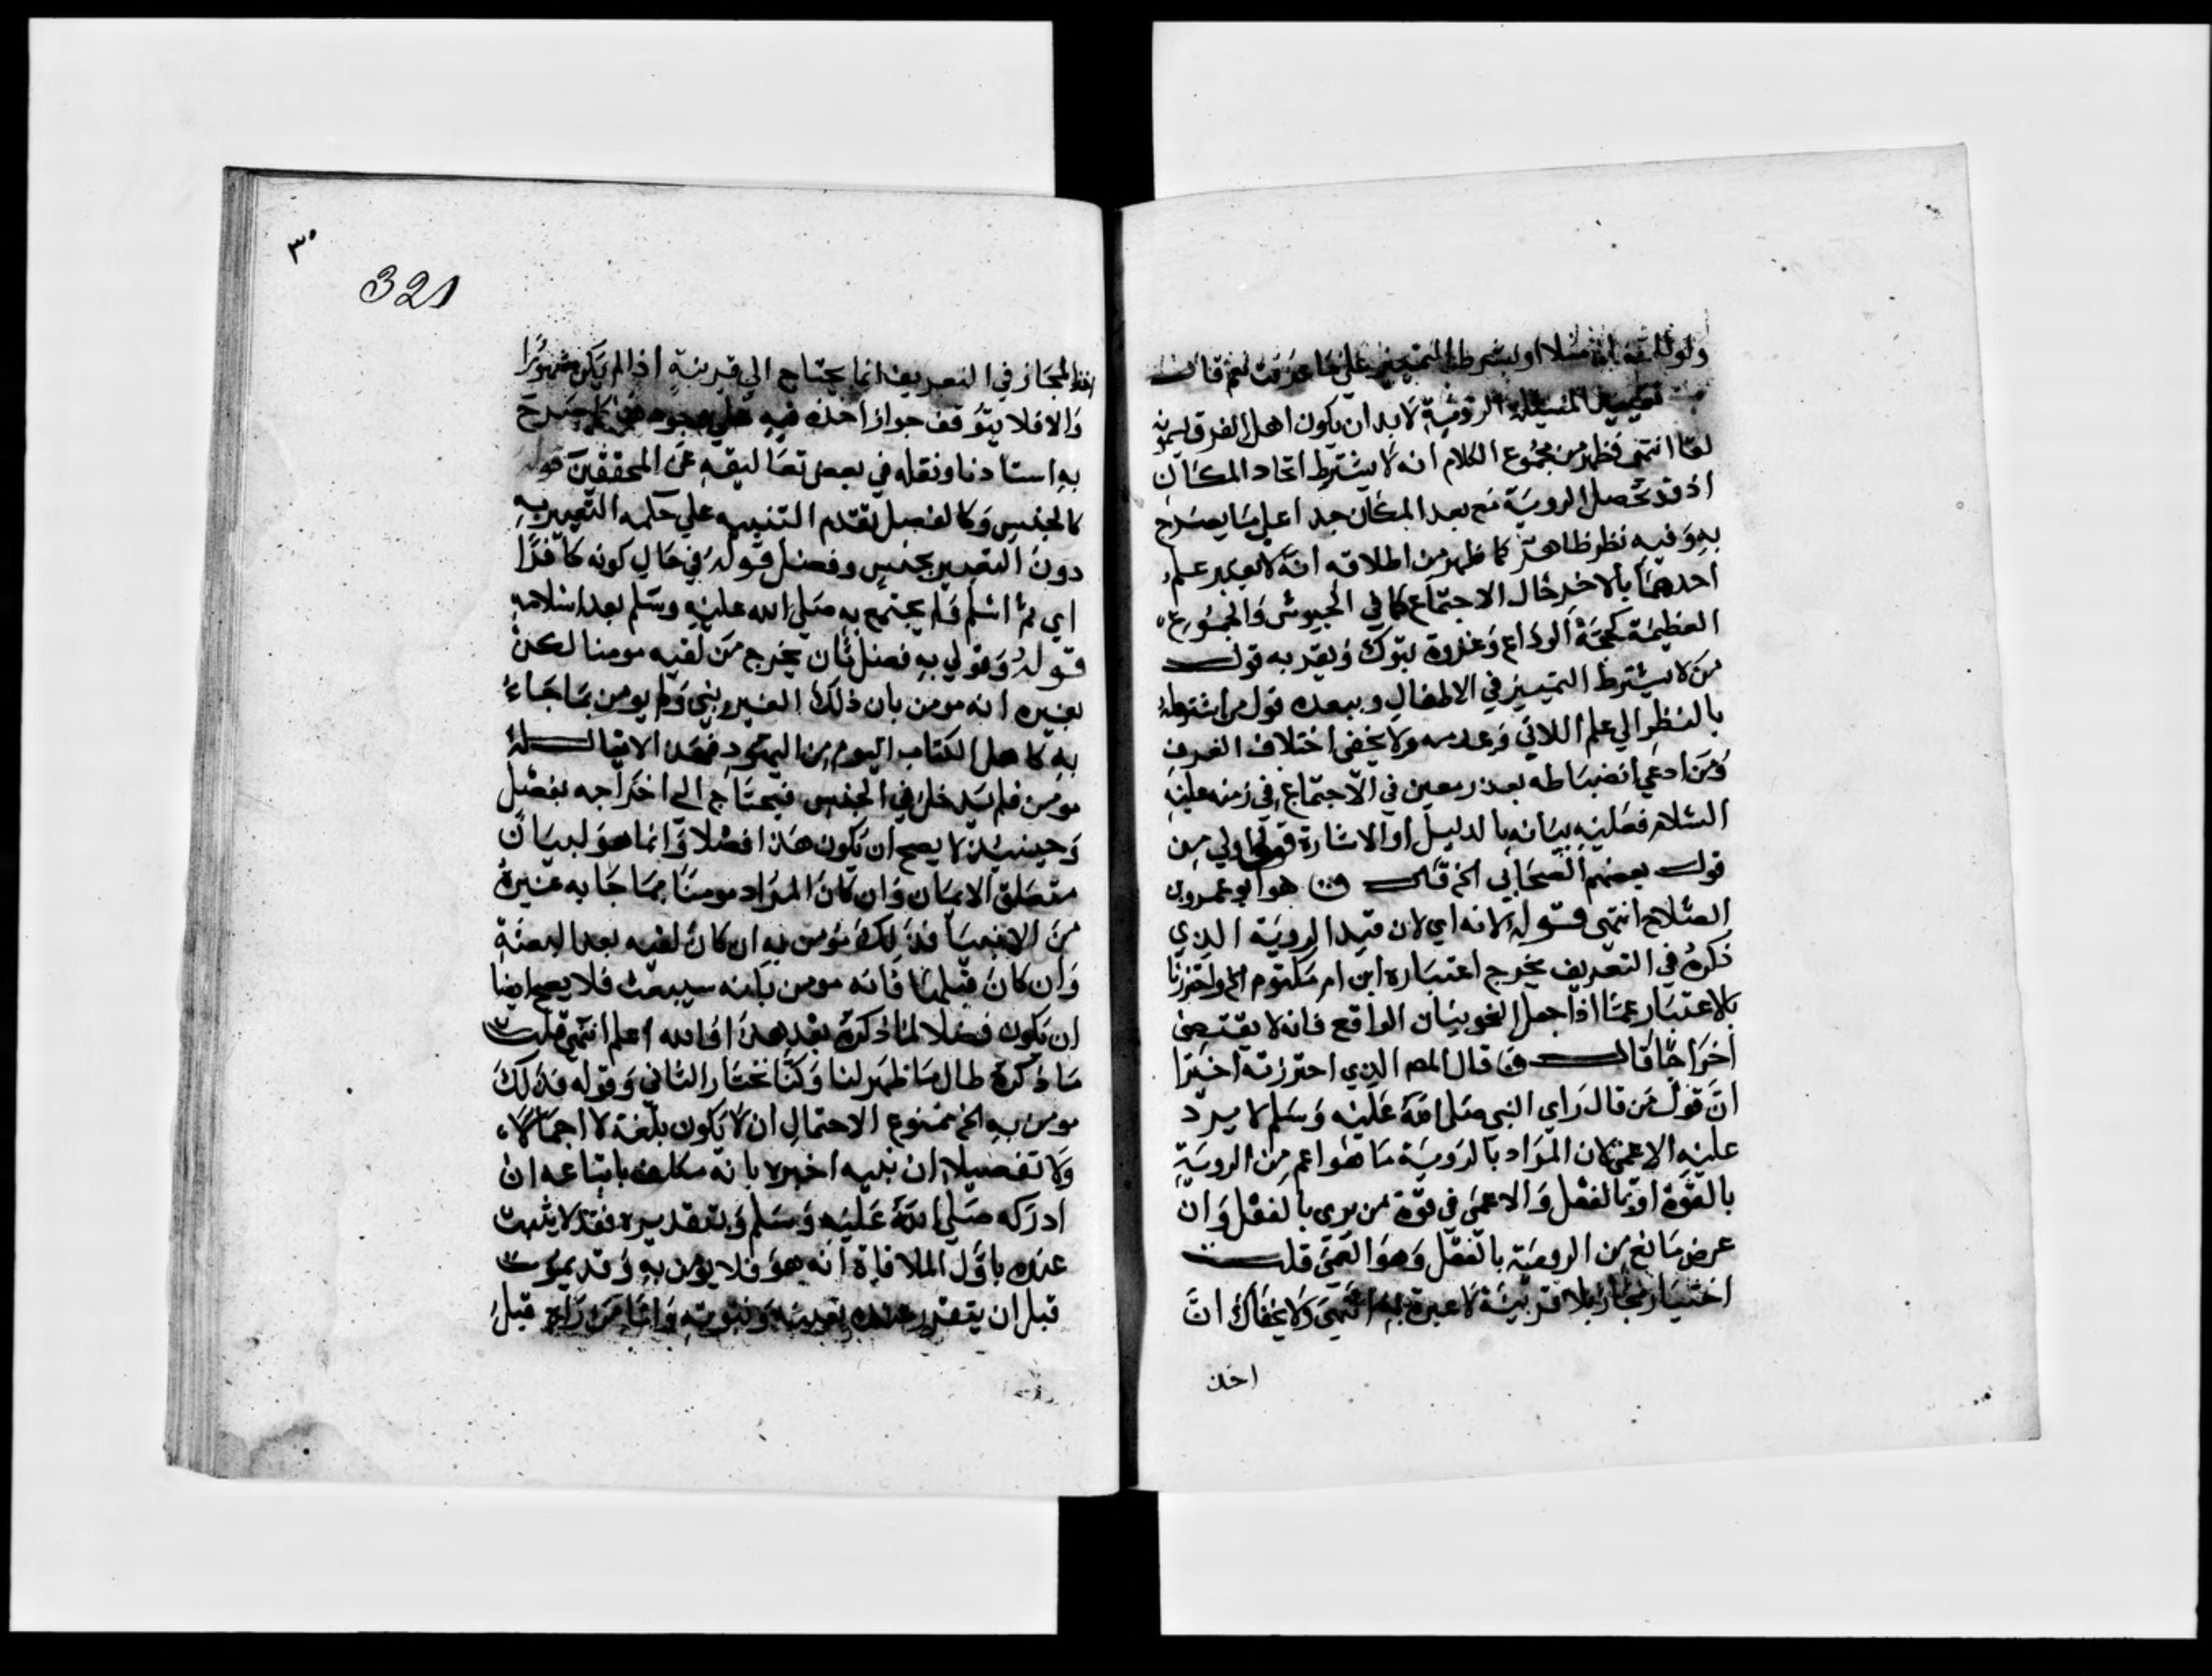 او بشرط التمييز علي ما عرفت نعم قال
الرؤية لا بد ان يكون اهل العرف يسمونه
لقا انتهى فظهر من مجموع الكلام انه لا يشترط اتحاد المكان
اذ قد تحصل الروية مع بعد المكان جدا علي ما يصدح
به وفيه نظر ظاهر كما ظهر من اطلاقه انه لا يعتبر علم
احدهما بالاخر حال الاجتماع كما في الجيوش والجموع
العظيمة كحجة الوداع وغزوة تبوك ويقربه قول
من لا يشترط التمييز في الاطفال ويبعده قول من اشترطه
بالنظر الي علم اللاقي وعدمه ولا يخفى اختلاف العرف
ومن ادعي انضباطه بعدد معين في الاجتماع في زمنه عليه
السلام فعليه بيانه بالدليل او الاشارة قوله اولي من
قول بعضهم الصحابي الخ قال هو ابو عمرو بن
الصلاح انتهى قوله لانه اي لان قيد الروية الذي
ذكره في التعريف يخرج اعتباره ابن ام مكتوم الخ واحترزنا
بالاعتبار عما اذا جعل النحو بيان الواقع فانه لا يقتضي
اخراجا قال قال المص الذي احترزته اخيرا
ان قول من قال راي النبي صلى الله عليه وسلم لا يرد
عليه الاعمى لان المراد بالروية ما هو اعم من الروية
بالقوة او بالفعل والاعمى في قوة من يرى بالفعل وان
عرض مانع من الروية بالفعل وهو العمى قلت
اختيار مجاز بلا قرينة لا عبرة به انتهى ولا يخفاك ان
اخذ
٣٠
321
اخذ المجاز في التعريف انما يحتاج الي قرينة اذا لم يكن مشهورا
والا فلا يتوقف جواز اخذه فيه علي صرح
به استاذنا ونقله في بعض تعاليقه عن المحققين قوله
كالجنس وكالفصل تقدم التنبيه علي حكمه التعبير به
دون التعبير بجنس وفصل قوله في حال كونه كافرا
اي ثم اسلم ولم يجتمع به صلى الله عليه وسلم بعد اسلامه
قوله وقولي به فصل ثان يخرج من لقيه مومنا لكن
بغيره انه مومن بان ذلك الغير نبي ولم يومن بما جاء
به كاهل الكتاب اليوم من اليهود فهذا لا يقال له
مومن فلم يدخل في الجنس فيحتاج الى اخراجه بفصل
وحينئذ لا يصح ان يكون هذا فصلا وانما هو لبيان
متعلق الايمان وان كان المراد مومنا بما جا به غيره
من الانبيا فذلك مومن به ان كان لقيه بعد البعثة
وان كان قبلها فانه مومن بانه سيبعث فلا يصح ايضا
ان يكون فصلا لما ذكره بعد هذا والله اعلم انتهى قلت
ما ذكره طال ما ظهر لنا وكنا نختار الثاني وقوله فذلك
مومن به الخ ممنوع الاحتمال ان لا يكون بلغه لا اجمالا
ولا تفصيلا ان نبيه اخبره بانه مكلف باتباعه ان
ادركه صلى الله عليه وسلم وبتقديره فقد لا يثبت
عنده باول الملاقاة انه هو فلا يومن به وقد يموت
قبل ان يتقرر عنده ونبوته واما من راه قبل